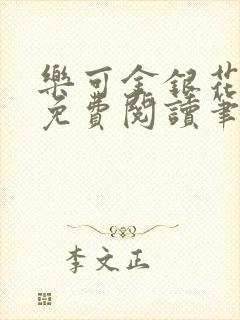 樂可金銀花
免費閱讀筆
李文正